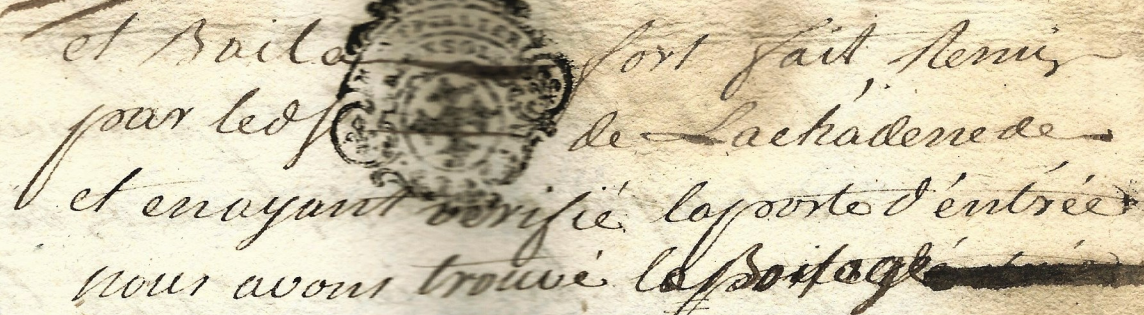 et Baila fort fait Remis
par led de Lachadenede
et en ayant vérifié la porte d'éntrée
nous avons trouvé